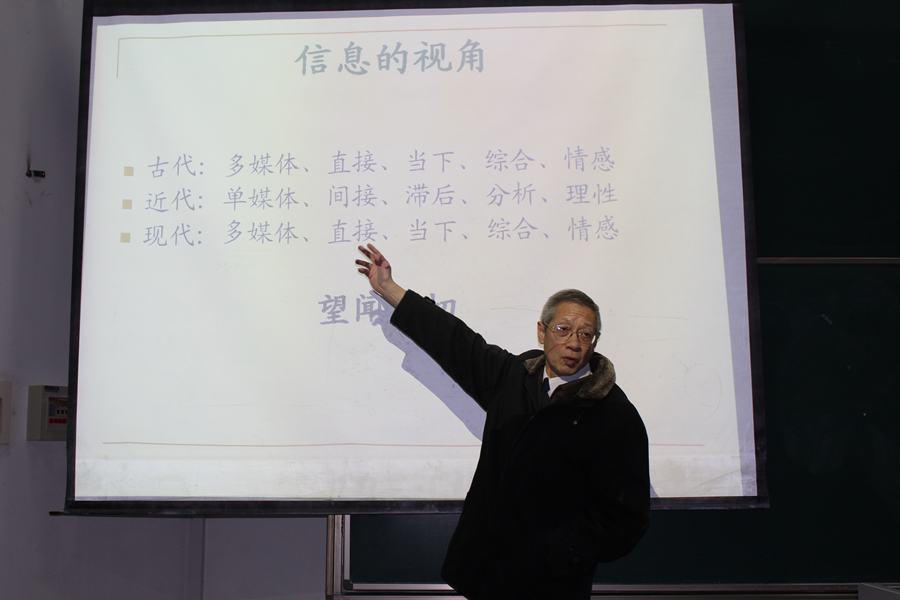 信息的视角
古代：多媒体、直接、当下、综合、情感
近代：单媒体、间接、滞后、分析、理性
现代：多媒体、直接、当下、综合、情感
望闻 切